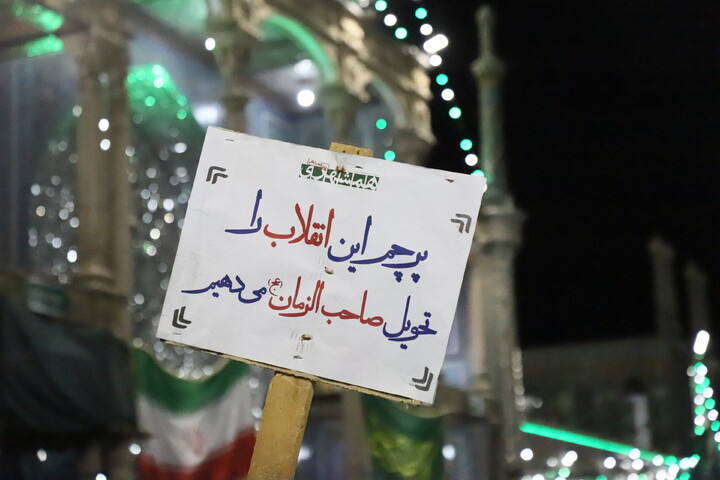 پرچم این انقلاب را
تحویل صاحب الزمان (عج) می‌دهیم